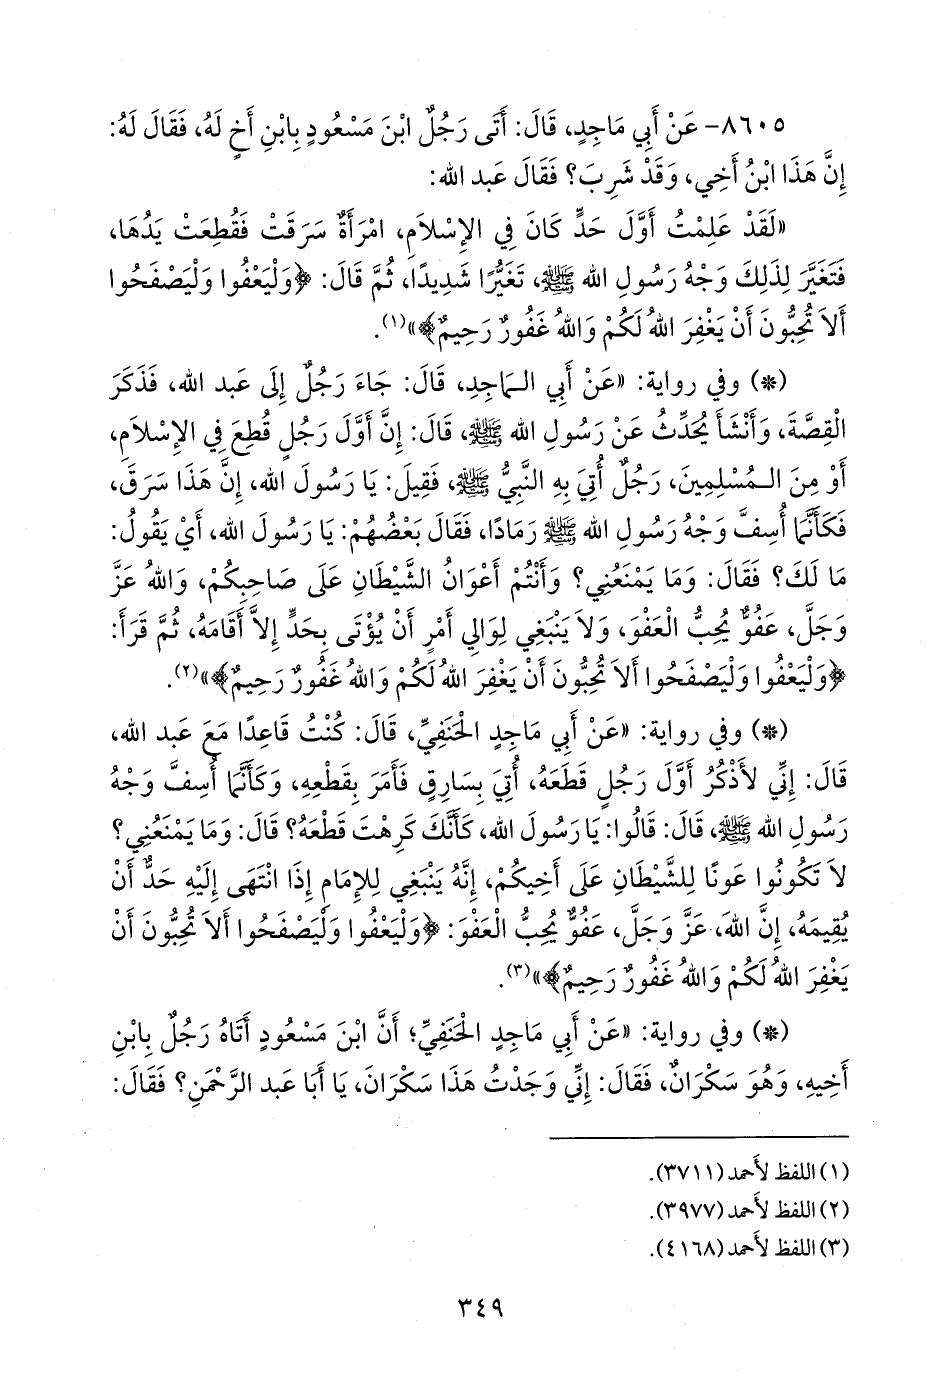 ٨٦٠٥- عَنْ أَبِي مَاجِدٍ، قَالَ: أَتَى رَجُلٌ ابْنَ مَسْعُودٍ بِابْنِ أَخٍ لَهُ، فَقَالَ لَهُ:
إِنَّ هَذَا ابْنُ أَخِي، وَقَدْ شَرِبَ؟ فَقَالَ عَبد الله:
«لَقَدْ عَلِمْتُ أَوَّلَ حَدٍّ كَانَ فِي الإِسْلاَمِ، امْرَأَةٌ سَرَقَتْ فَقُطِعَتْ يَدُهَا،
فَتَغَيَّرَ لِذَلِكَ وَجْهُ رَسُولِ الله ﷺ، تَغَيُّرًا شَدِيدًا، ثُمَّ قَالَ: ﴿وَلْيَعْفُوا وَلْيَصْفَحُوا
أَلاَ تُحِبُّونَ أَنْ يَغْفِرَ اللهُ لَكُمْ وَاللهُ غَفُورٌ رَحِيمٌ﴾»(١).
(*) وفي رواية: «عَنْ أَبِي الـمَاجِدِ، قَالَ: جَاءَ رَجُلٌ إِلَى عَبد الله، فَذَكَرَ
الْقِصَّةَ، وَأَنْشَأَ يُحَدِّثُ عَنْ رَسُولِ الله ﷺ، قَالَ: إِنَّ أَوَّلَ رَجُلٍ قُطِعَ فِي الإِسْلاَمِ،
أَوْ مِنَ الـمُسْلِمِينَ، رَجُلٌ أُتِيَ بِهِ النَّبِيُّ ﷺ، فَقِيلَ: يَا رَسُولَ الله، إِنَّ هَذَا سَرَقَ،
فَكَأَنَّمَا أُسِفَّ وَجْهُ رَسُولِ الله ﷺ رَمَادًا، فَقَالَ بَعْضُهُمْ: يَا رَسُولَ الله، أَيْ يَقُولُ:
مَا لَكَ؟ فَقَالَ: وَمَا يَمْنَعُنِي؟ وَأَنْتُمْ أَعْوَانُ الشَّيْطَانِ عَلَى صَاحِبِكُمْ، وَاللهُ عَزَّ
وَجَلَّ، عَفُوٌّ يُحِبُّ الْعَفْوَ، وَلاَ يَنْبَغِي لِوَالِي أَمْرٍ أَنْ يُؤْتَى بِحَدٍّ إِلاَّ أَقَامَهُ، ثُمَّ قَرَأَ:
﴿وَلْيَعْفُوا وَلْيَصْفَحُوا أَلاَ تُحِبُّونَ أَنْ يَغْفِرَ اللهُ لَكُمْ وَاللهُ غَفُورٌ رَحِيمٌ﴾»(٢).
(*) وفي رواية: «عَنْ أَبِي مَاجِدٍ الْحَنَفِيِّ، قَالَ: كُنْتُ قَاعِدًا مَعَ عَبد الله،
قَالَ: إِنِّي لأَذْكُرُ أَوَّلَ رَجُلٍ قَطَعَهُ، أُتِيَ بِسَارِقٍ فَأَمَرَ بِقَطْعِهِ، وَكَأَنَّمَا أُسِفَّ وَجْهُ
رَسُولِ الله ﷺ، قَالَ: قَالُوا: يَا رَسُولَ الله، كَأَنَّكَ كَرِهْتَ قَطْعَهُ؟ قَالَ: وَمَا يَمْنَعُنِي؟
لاَ تَكُونُوا عَونًا لِلشَّيْطَانِ عَلَى أَخِيكُمْ، إِنَّهُ يَنْبَغِي لِلإِمَامِ إِذَا انْتَهَى إِلَيْهِ حَدٌّ أَنْ
يُقِيمَهُ، إِنَّ اللهَ، عَزَّ وَجَلَّ، عَفُوٌّ يُحِبُّ الْعَفْوَ: ﴿وَلْيَعْفُوا وَلْيَصْفَحُوا أَلاَ تُحِبُّونَ أَنْ
يَغْفِرَ اللهُ لَكُمْ وَاللهُ غَفُورٌ رَحِيمٌ﴾»(٣).
(*) وفي رواية: «عَنْ أَبِي مَاجِدٍ الْحَنَفِيِّ؛ أَنَّ ابْنَ مَسْعُودٍ أَتَاهُ رَجُلٌ بِابْنِ
أَخِيهِ، وَهُوَ سَكْرَانٌ، فَقَالَ: إِنِّي وَجَدْتُ هَذَا سَكْرَانَ، يَا أَبَا عَبد الرَّحْمَنِ؟ فَقَالَ:
(١) اللفظ لأَحمد (٣٧١١).
(٢) اللفظ لأَحمد (٣٩٧٧).
(٣) اللفظ لأَحمد (٤١٦٨).
٣٤٩